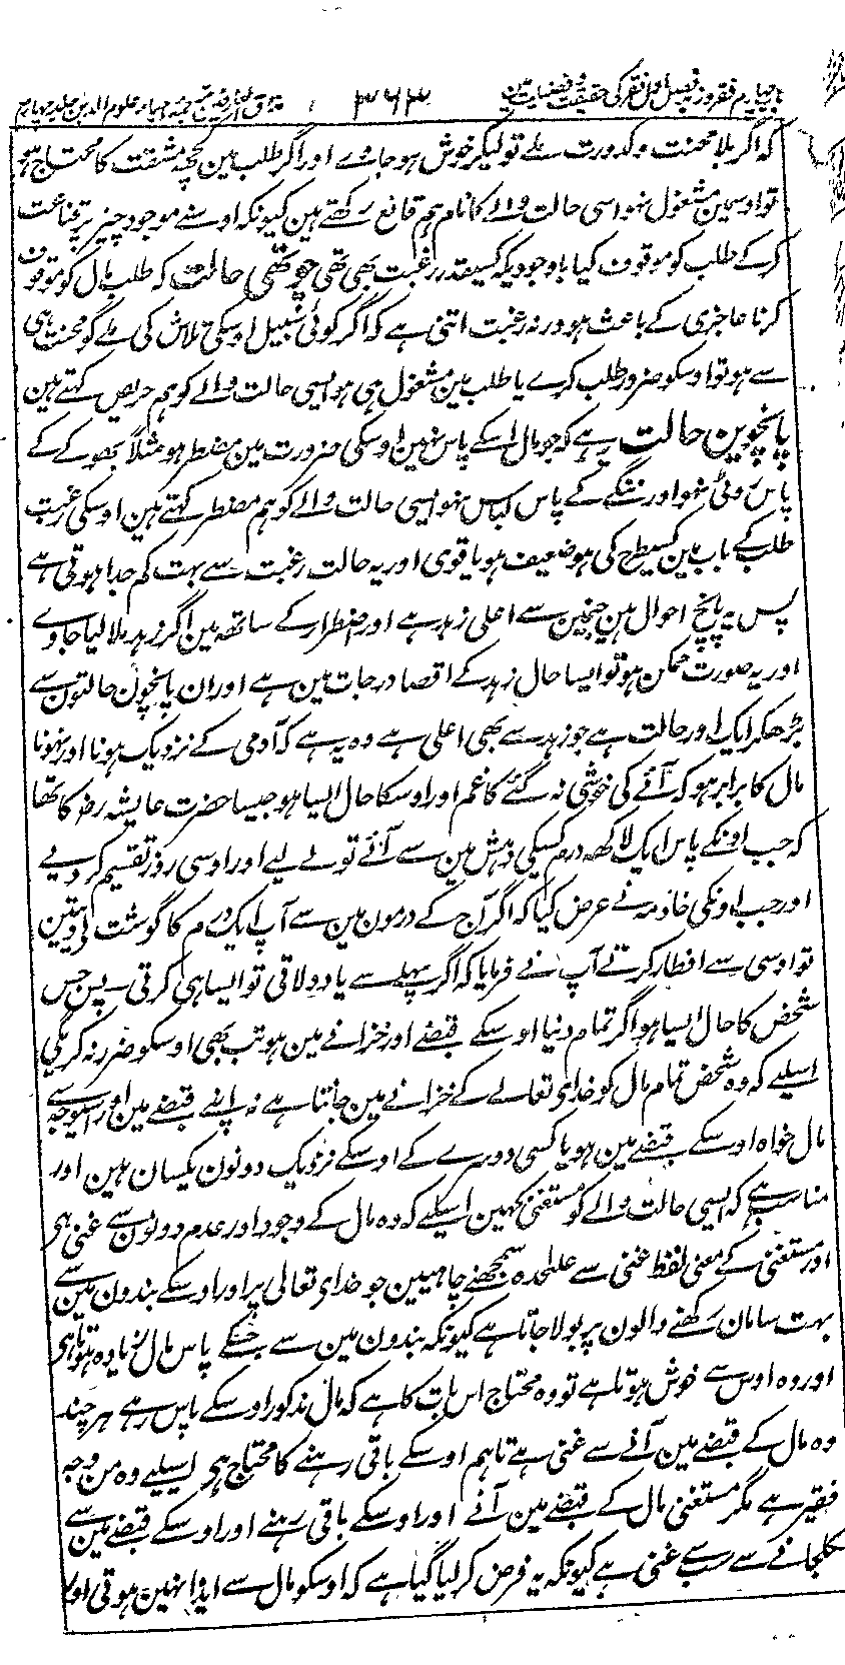 باب چہارم فقر و زہد فصل اول فقر کی حقیقت و فضیلت مین ۳۶۳ مذاق العارفین ترجمہ احیاء علوم الدین جلد چہارم
کہ اگر بلا محنت و کدورت ملے تو لیکر خوش ہو جاوے اور اگر طلب مین کچھ مشقت کا محتاج ہو
تو اوسمین مشغول نہو اسی حالت والے کا نام ہم قانع رکھتے ہین کیونکہ اوسنے موجود چیز پر قناعت
کرکے طلب کو موقوف کیا باوجودیکہ کسیقدر رغبت بھی تھی چوتھی حالت کہ طلب مال کو موقوف
کرنا عاجزی کے باعث ہو ورنہ رغبت اتنی ہے کہ اگر کوئی سبیل اوسکی تلاش کی ملے گو محنت ہی
سے ہو تو اوسکو ضرور طلب کرے یا طلب مین مشغول ہی ہو ایسی حالت والے کو ہم حریص کہتے ہین
پانچوین حالت یہ ہے کہ جو مال اسکے پاس نہین اوسکی ضرورت مین مضطر ہو مثلاً بھوکے کے
پاس روٹی نہو اور ننگے کے پاس لباس نہو ایسی حالت والے کو ہم مضطر کہتے ہین اوسکی رغبت
طلب کے باب مین کسیطرح کی ہو ضعیف ہو یا قوی اور یہ حالت رغبت سے بہت کم جدا ہوتی ہے
پس یہ پانچ احوال ہین جنمین سے اعلی زہد ہے اور اضطرار کے ساتھ مین اگر زہد ملا لیا جاوے
اور یہ صورت ممکن ہو تو ایسا حال زہد کے اقصا درجات مین ہے اور ان پانچون حالتون سے
بڑھکر ایک اور حالت ہے جو زہد سے بھی اعلی ہے وہ یہ ہے کہ آدمی کے نزدیک ہونا اور نہونا
مال کا برابر ہو کہ آئے کی خوشی نہ گئے کا غم اور اوسکا حال ایسا ہو جیسا حضرت عایشہ رضہ کا تھا
کہ جب اونکے پاس ایک لاکھ درم کسیکی دہش مین سے آئے تو لے لیے اور اوسی روز تقسیم کر دیے
اور جب اونکی خادمہ نے عرض کیا کہ اگر آج کے درمون مین سے آپ ایک درم کا گوشت لے دیتین
تو اوسی سے افطار کرتے آپ نے فرمایا کہ اگر پہلے سے یاد دلاتی تو ایسا ہی کرتی پس جس
شخص کا حال ایسا ہو اگر تمام دنیا اوسکے قبضے اور خزانے مین ہو تب بھی اوسکو ضرر نہ کریگی
اسلیے کہ وہ شخص تمام مال کو خداے تعالے کے خزانے مین جانتا ہے نہ اپنے قبضے مین اور اسیوجہ سے
مال خواہ اوسکے قبضے مین ہو یا کسی دوسرے کے اوسکے نزدیک دونون یکسان ہین اور
مناسب ہے کہ ایسی حالت والے کو مستغنی کہین اسلیے کہ وہ مال کے وجود اور عدم دونون سے غنی ہی
اور مستغنی کے معنی لفظ غنی سے علٰحدہ سمجھنے چاہیین جو خداے تعالی پر اور اوسکے بندون مین سے
بہت سامان رکھنے والون پر بولا جاتا ہے کیونکہ بندون مین سے جسکے پاس مال زیادہ ہوتا ہی
اور وہ اوس سے خوش ہوتا ہے تو وہ محتاج اس بات کا ہے کہ مال مذکور اوسکے پاس رہے ہر چند
وہ مال کے قبضے مین آنے سے غنی ہے تاہم اوسکے باقی رہنے کا محتاج ہی اسلیے وہ من وجہ
فقیر ہے مگر مستغنی مال کے قبضے مین آنے اور اوسکے باقی رہنے اور اوسکے قبضے مین سے
نکلجانے سے سب سے غنی ہے کیونکہ یہ فرض کر لیا گیا ہے کہ اوسکو مال سے ایذا نہین ہوتی اور